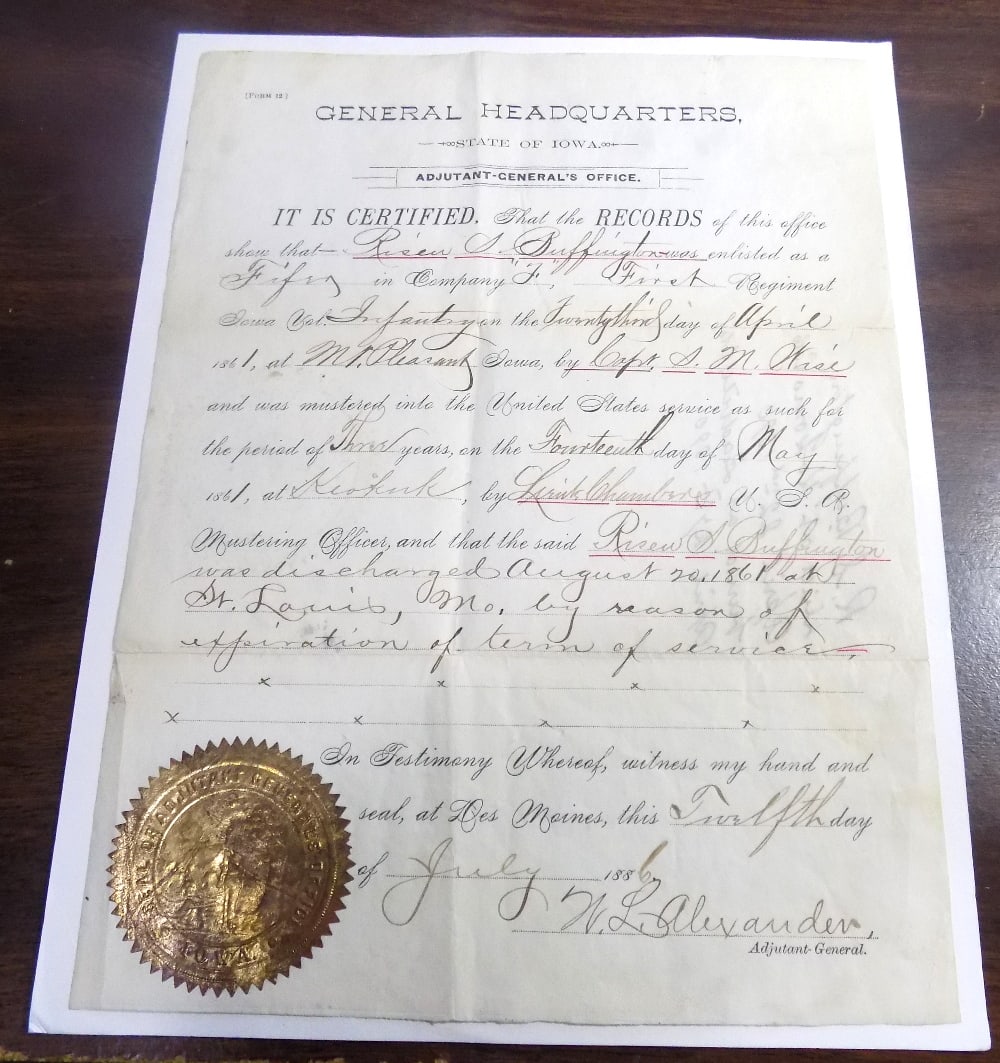 (FORM 12)
GENERAL HEADQUARTERS,
STATE OF IOWA.
ADJUTANT-GENERAL'S OFFICE.
IT IS CERTIFIED. That the RECORDS of this office
show that Risen S. Buffington was enlisted as a
Fifer in Company "F", First Regiment
Iowa Vol. Infantry on the Twentythird day of April
1861, at Mt. Pleasant Iowa, by Capt. S. M. Wise
and was mustered into the United States service as such for
the period of Three years, on the Fourteenth day of May
1861, at Keokuk, by Lieut Chambers U. S. A.
Mustering Officer, and that the said Risen S. Buffington
was discharged August 20, 1861 at
St. Louis, Mo. by reason of
expiration of term of service.
x x x x
x x x x
In Testimony Whereof, witness my hand and
seal, at Des Moines, this Twelfth day
of July 1886.
W. L. Alexander,
Adjutant-General.
SEAL OF ADJUTANT GENERAL'S OFFICE
IOWA